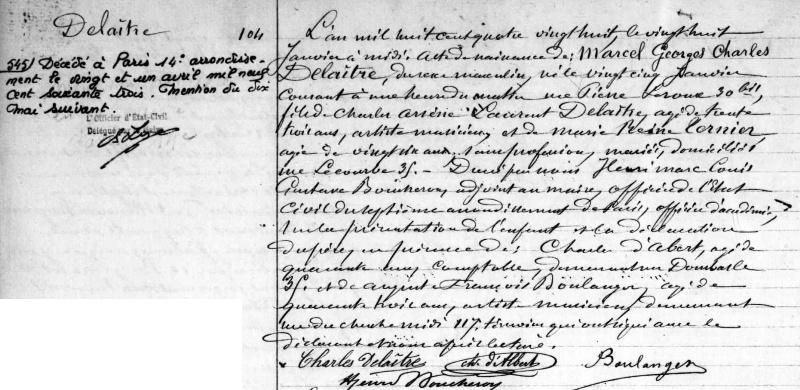 Delaître
104
545/ Décédé à Paris 14e arrondisse-
ment le vingt et un avril mil neuf
cent soixante trois. Mention du dix
mai suivant.
L'Officier d'Etat-Civil
Délégué
L'an mil huit cent quatre vingt huit le vingt huit
Janvier à midi. Acte de naissance de: Marcel Georges Charles
Delaitre, du sexe masculin, né le vingt cinq Janvier
courant à une heure du matin rue Pierre Leroux 30 bis,
fils de Charles Arsène Laurent Delaitre, agé de trente
trois ans, artiste musicien, et de Marie Reine Cornier,
agée de vingt six ans, sans profession, mariés, domiciliés
rue Lecourbe 35. – Dressé par nous Henri Marc Louis
Gustave Boucheron, adjoint au maire, officier de l'Etat
Civil du septième arrondissement de Paris, officier d'académie,
sur la présentation de l'enfant et la déclaration
du père, en présence de: Charles d'Albert, agé de
quarante ans, comptable, demeurant rue Dombasle
35. et de François Boulanger, agé de
quarante trois ans, artiste musicien, demeurant
rue du cherche midi 117. témoins qui ont signé avec le
déclarant et nous après lecture.
Charles Delaître Ch. d'Albert Boulanger
Henri Boucheron